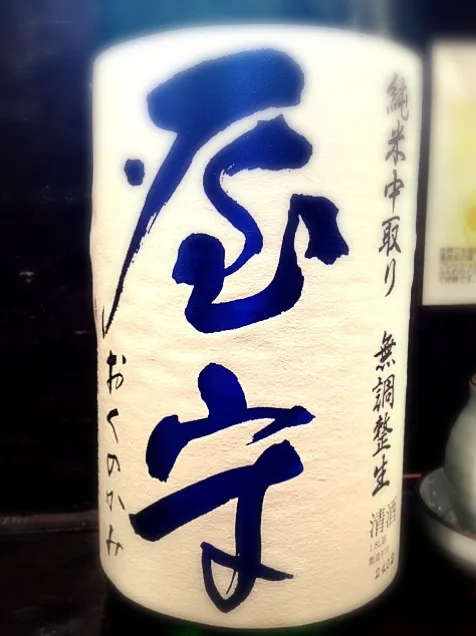 純米中取り 無調整生
屋守
おくのかみ
清酒